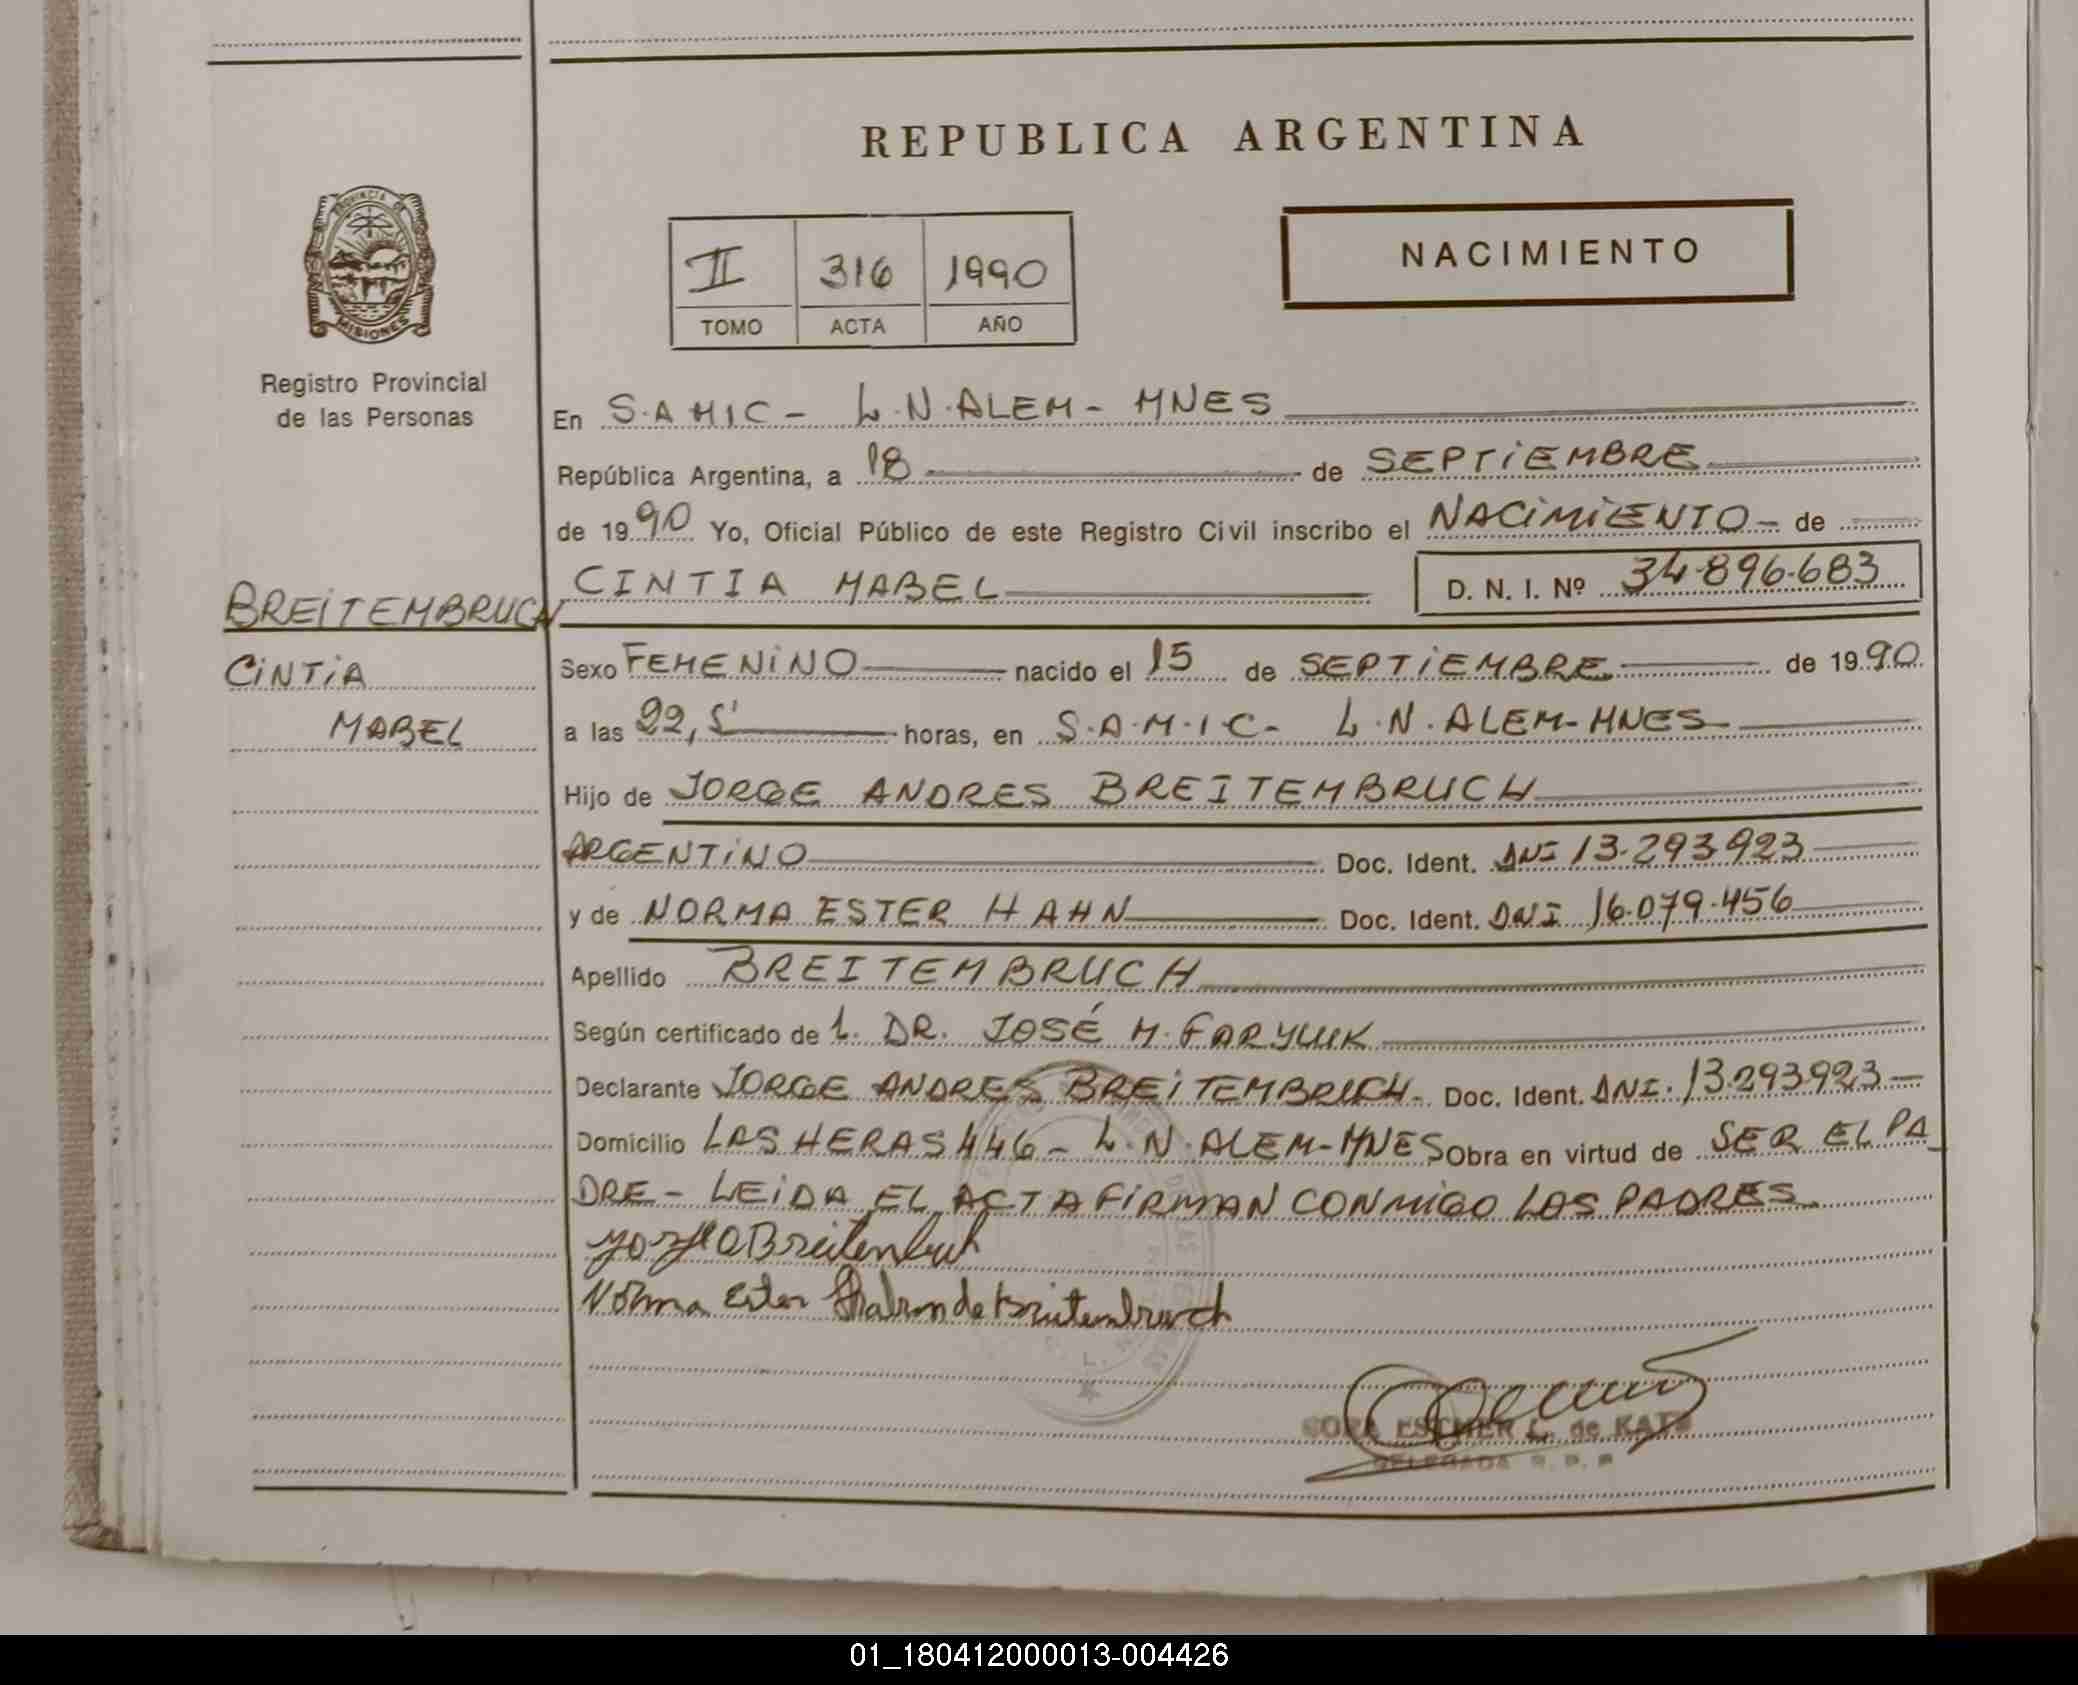 REPUBLICA ARGENTINA
PROVINCIA DE
MISIONES
Registro Provincial
de las Personas
II 316 1990
TOMO ACTA AÑO
NACIMIENTO
En S.AMIC - L.N.ALEM - MNES
República Argentina, a 18 de SEPTIEMBRE
de 1990 Yo, Oficial Público de este Registro Civil inscribo el NACIMIENTO - de
CINTIA MABEL D. N. I. Nº 34.896.683
BREITEMBRUCH
CINTIA
MABEL
Sexo FEMENINO nacido el 15 de SEPTIEMBRE de 1990
a las 22, 5' horas, en S.A.M.I.C- L.N.ALEM-MNES
Hijo de JORGE ANDRES BREITEMBRUCH
ARGENTINO Doc. Ident. DNI 13.293.923
y de NORMA ESTER HAHN Doc. Ident. DNI 16.079.456
Apellido BREITEMBRUCH
Según certificado de L. DR. JOSÉ M. FARYLUK
Declarante JORGE ANDRES BREITEMBRUCH - Doc. Ident. DNI. 13.293.923 -
Domicilio LAS HERAS 446 - L.N.ALEM-MNES Obra en virtud de SER EL PA
DRE - LEIDA EL ACTA FIRMAN CONMIGO LOS PADRES
Norma Ester Hahn de Breitembruch
ESTHER L. de KATZ
DELEGADA R. P. P
01_180412000013-004426